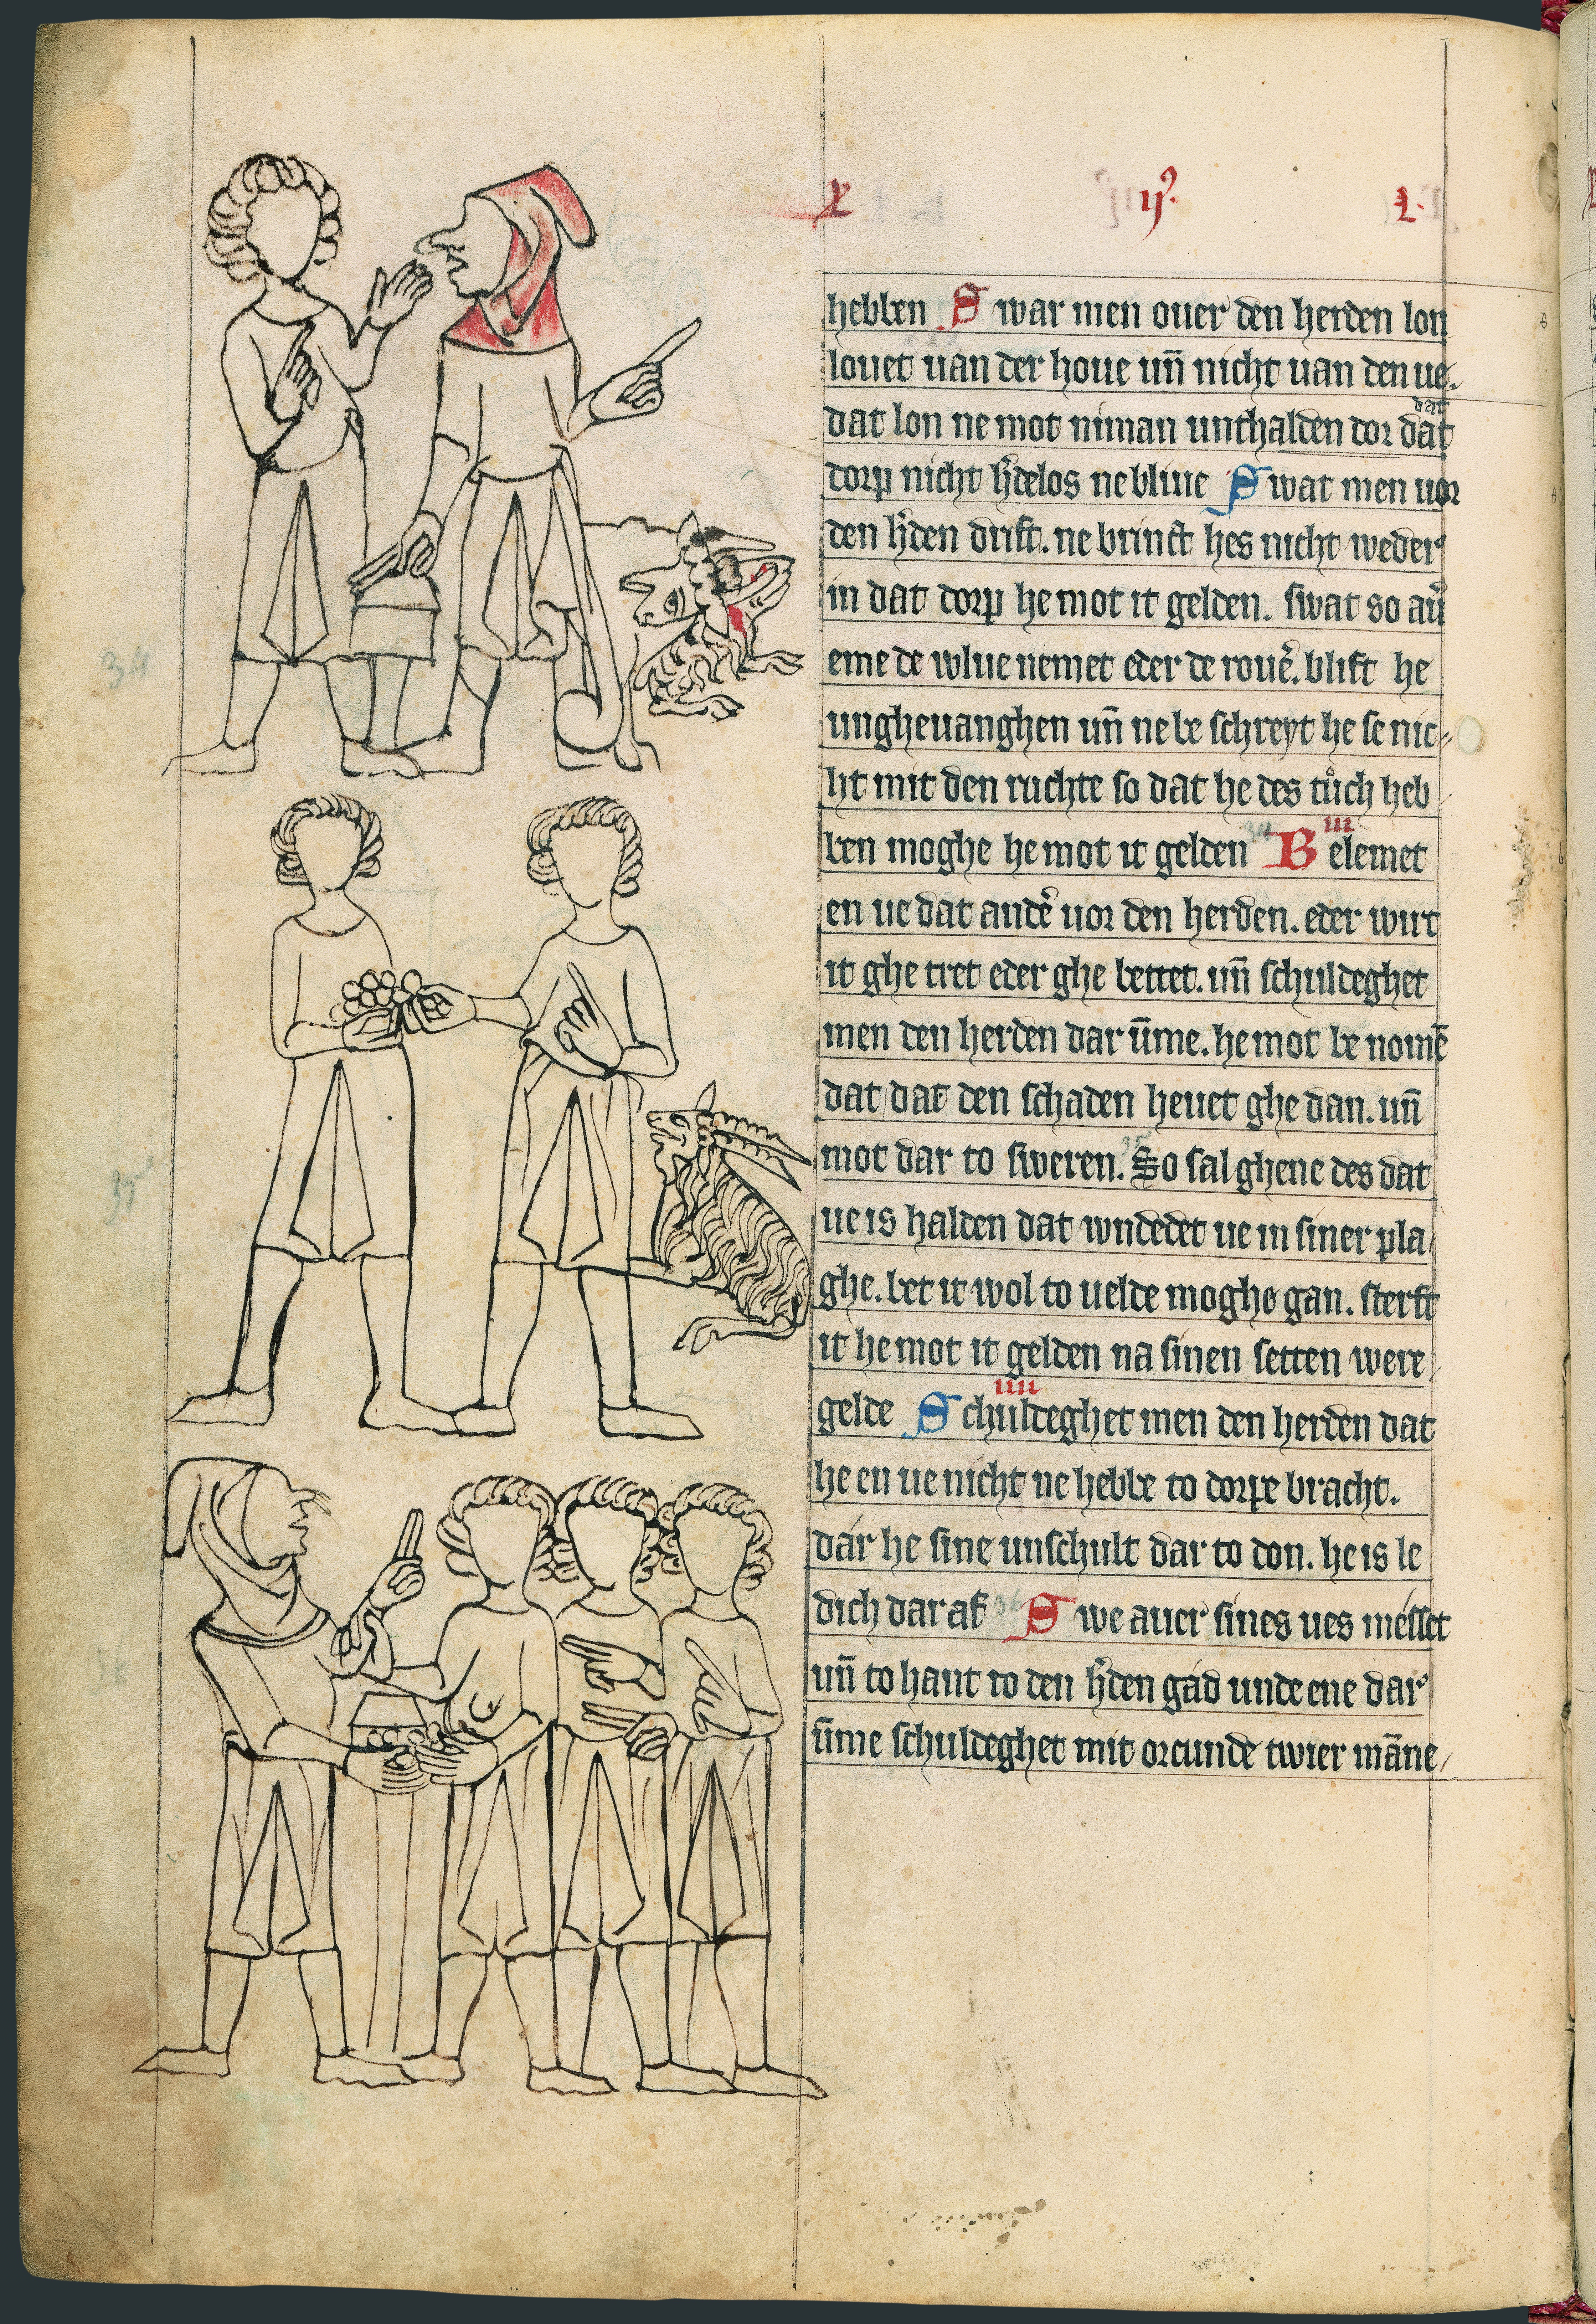 L ij⁹. L.
hebben Swar men ouer den herden lon
louet uan der houe un̄ nicht uan den ue.
dat lon ne mot niman unthalden dor dat dat
dorp nicht h̓delos ne bliue Swat men uor
den h̓den drift. ne brinct hes nicht weder
in dat dorp he mot it gelden. swat so au̓
eme de wlue nemet eder de roue̓. blift he
ungheuanghen un̄ ne be schreyt he se nic-
ht mit den ruchte so dat he des tůch heb
ben moghe he mot it gelden 34 III Belemet
en ue dat ande̓ uor den herden. eder wirt
it ghe tret eder ghe bettet. un̄ schuldeghet
men den herden dar ūme. he mot be nomē
dat dat den schaden heuet ghe dan. un̄
mot dar to sweren. 35 So sal ghene des dat
ue is halden dat wndedet ue in siner pla
ghe. bet it wol to uelde moghe gan. sterft
it he mot it gelden na sinen setten were
gelde IIII Schuldeghet men den herden dat
he en ue nicht ne hebbe to dorpe bracht.
dar he sine unschult dar to don. he is le
dich dar af 36 Swe auer sines ues misset
un̄ to hant to den h̓den gad unde ene dar
ūme schuldeghet mit orcunde twier māne
34
35
36